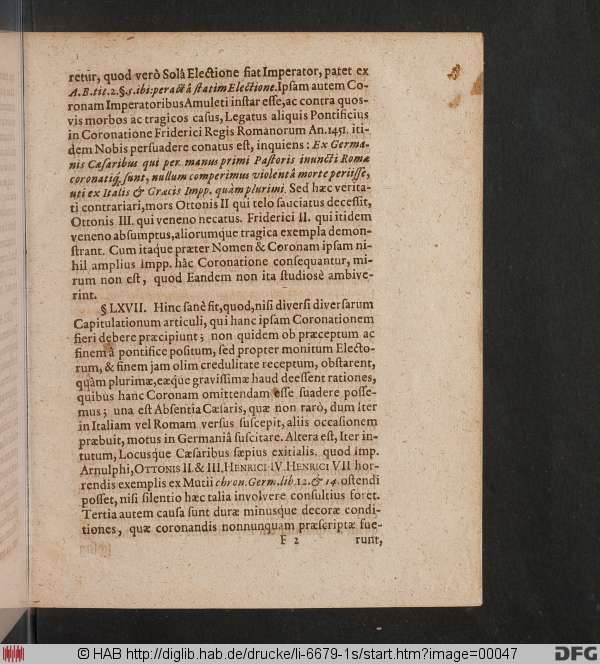 retur, quod verò Solâ Electione fiat Imperator, patet ex
A. B. tit. 2. §. 5. ibi: peractâ statim Electione. Ipsam autem Co-
ronam Imperatoribus Amuleti instar esse, ac contra quos-
vis morbos ac tragicos casus, Legatus aliquis Pontificius
in Coronatione Friderici Regis Romanorum An. 1451. iti-
dem Nobis persuadere conatus est, inquiens: Ex Germa-
nis Cæsaribus qui per manus primi Pastoris inuncti Romæ
coronatiq́; sunt, nullum comperimus violentâ morte periisse,
uti ex Italis & Græcis Impp. quàm plurimi. Sed hæc verita-
ti contrariari, mors Ottonis II qui telo sauciatus decessit,
Ottonis III. qui veneno necatus. Friderici II. qui itidem
veneno absumptus, aliorumque tragica exempla demon-
strant. Cum itaque præter Nomen & Coronam ipsam ni-
hil amplius Impp. hâc Coronatione consequantur, mi-
rum non est, quod Eandem non ita studiosè ambive-
rint.
§ LXVII. Hinc sanè fit, quod, nisi diversi diversarum
Capitulationum articuli, qui hanc ipsam Coronationem
fieri debere præcipiunt; non quidem ob præceptum ac
finem à pontifice positum, sed propter monitum Electo-
rum, & finem jam olim credulitate receptum, obstarent,
quàm plurimæ, eæque gravissimæ haud deessent rationes,
quibus hanc Coronam omittendam esse suadere posse-
mus; una est Absentia Cæsaris, quæ non rarò, dum Iter
in Italiam vel Romam versus suscepit, aliis occasionem
præbuit, motus in Germaniâ suscitare. Altera est, Iter in-
tutum, Locusque Cæsaribus sæpius exitialis. quod Imp.
Arnulphi, OTTONIS II. & III. HENRICI IV. HENRICI VII hor-
rendis exemplis ex Mutii chron. Germ. lib. 12. & 14. ostendi
posset, nisi silentio hæc talia involvere consultius foret.
Tertia autem causa sunt duræ minusque decoræ condi-
tiones, quæ coronandis nonnunquam præscriptæ fue-
F 2 runt,
© HAB http://diglib.hab.de/drucke/li-6679-1s/start.htm?image=00047
DFG